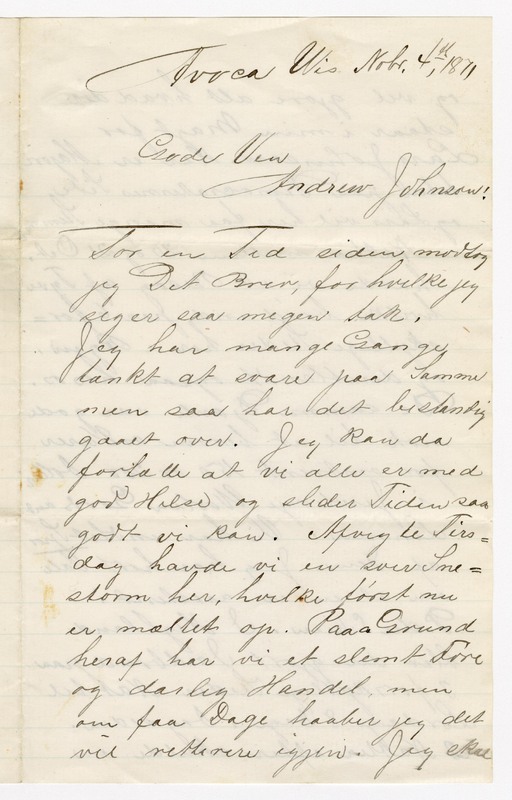 Avoca Wis. Nobr. 4th, 1871
Gode Ven
Andrew Johnson!
For en Tid siden modtog
jeg Det Brev, for hvilke jeg
seger saa megen tak.
Jeg har mange Gange
tænkt at svare paa Samme
men saa har det bestandig
gaaet over. Jeg kan da
fortælle at vi alle er med
god Helse og slider Tiden saa
godt vi kan. Afvigte Tirs=
dag havde vi en svær Sne=
storm her, hvilke først nu
er mæltet op. Paa Grund
heraf har vi et slemt Føre
og darlig Handel, men
om faa Dage haaber jeg det
vil rettere igjen. Jeg skal